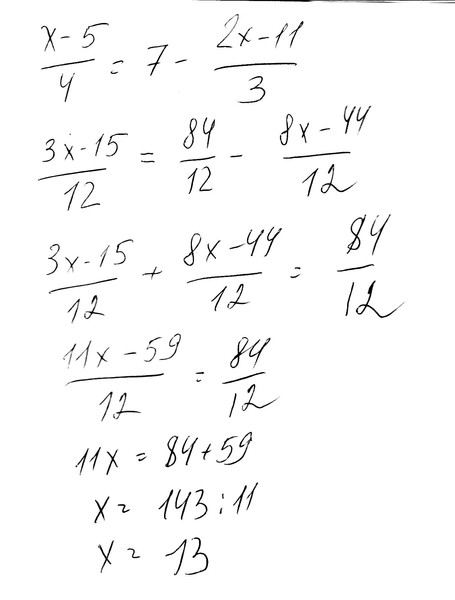 x-5/4 = 7 - 2x-11/3
3x-15/12 = 84/12 - 8x-44/12
3x-15/12 + 8x-44/12 = 84/12
11x-59/12 = 84/12
11x = 84+59
x = 143:11
x = 13